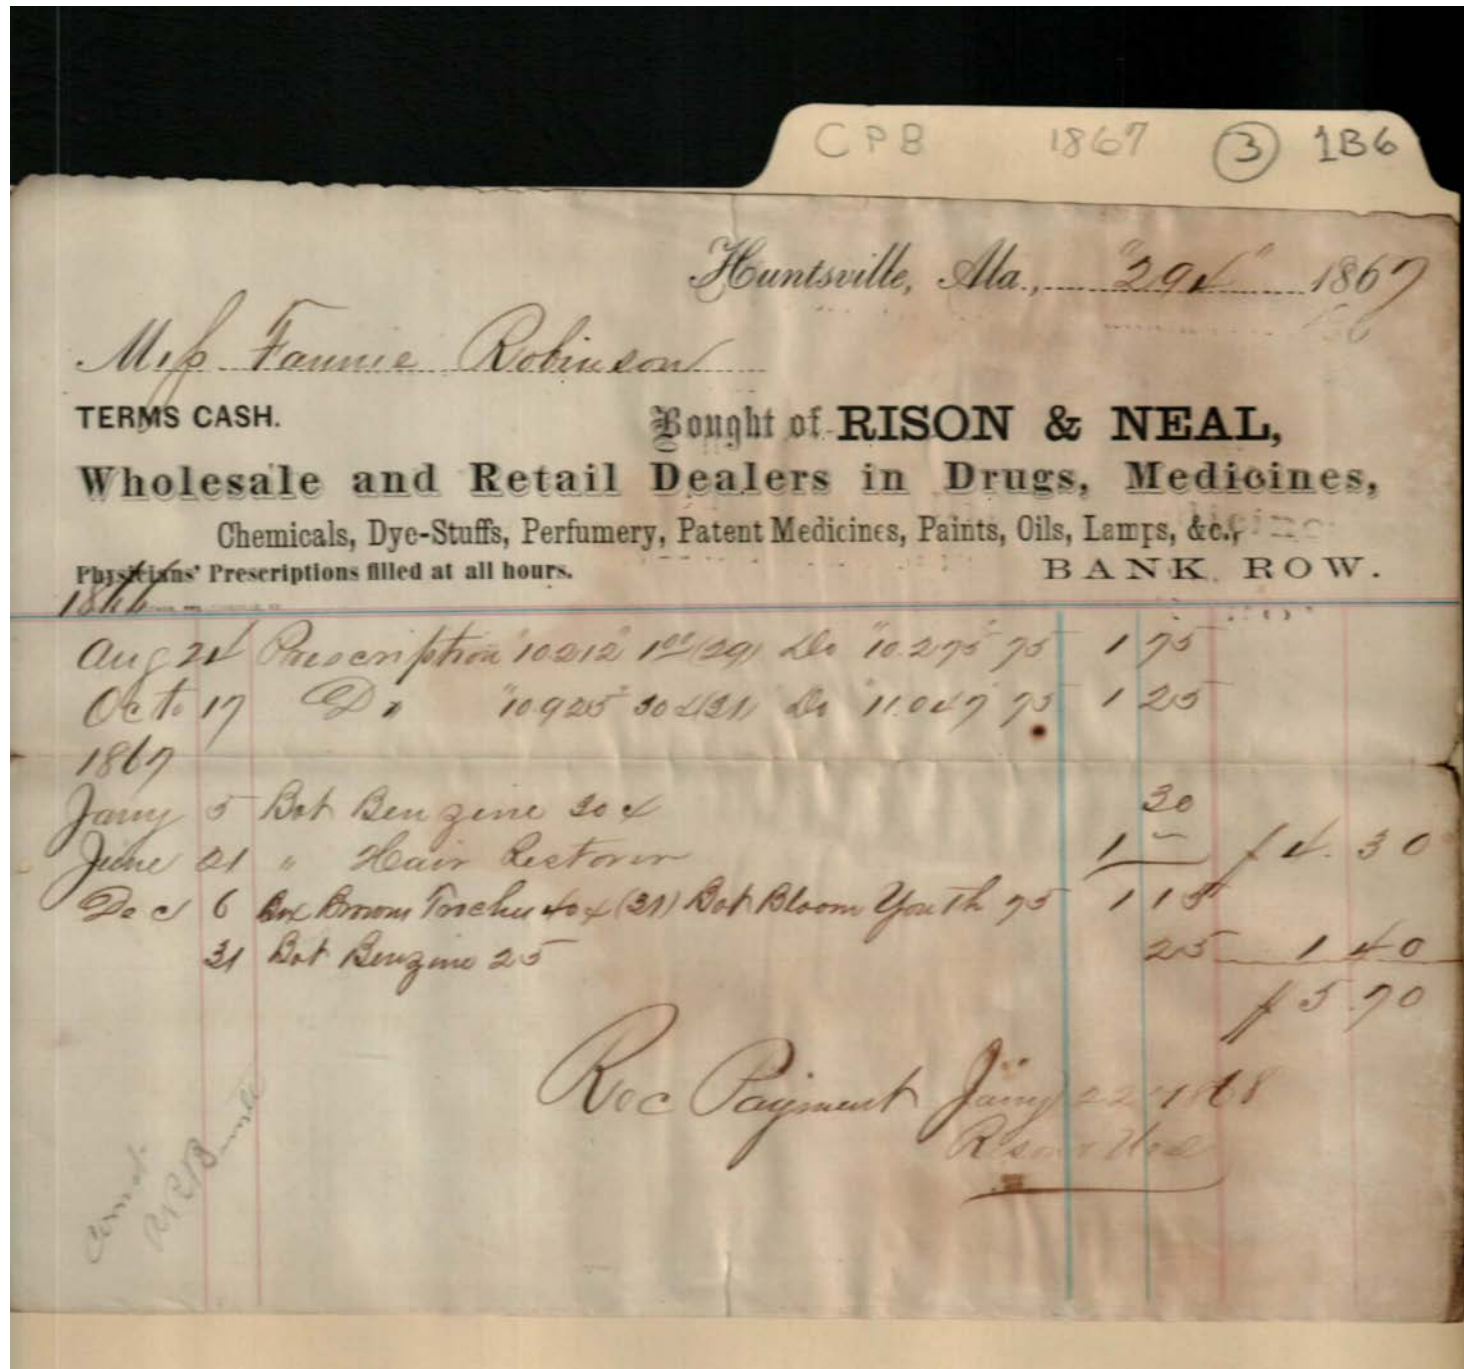 CPB 1867 3 1B6
Huntsville, Ala., 1867
Miss Fannie Robinson
TERMS CASH. Bought of RISON & NEAL,
Wholesale and Retail Dealers in Drugs, Medicines,
Chemicals, Dye-Stuffs, Perfumery, Patent Medicines, Paints, Oils, Lamps, &c.,
Physicians' Prescriptions filled at all hours. BANK ROW.
1866
Aug 24 Prescription "10212" 1 00 (29) Do "10.275" 75 1 75
Oct. 17 Do "10925" 50 (31) Do "11.047" 75 1 25
1867
Jany 5 Bot Benzine 30 30
June 21 " Hair Restorer 1 – $ 4. 30
Dec 6 Box Browns Troches 40 (31) Bot Bloom Youth 75 1 15
31 Bot Benzine 25 25 1 40
$ 5.70
Rec Payment Jany 22 1868
Rison &